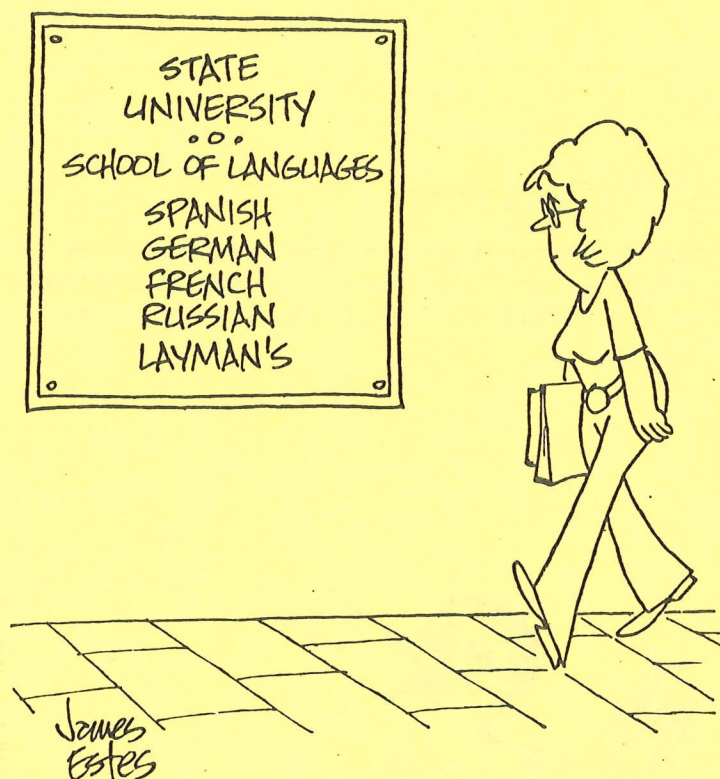 STATE
UNIVERSITY
SCHOOL OF LANGUAGES
SPANISH
GERMAN
FRENCH
RUSSIAN
LAYMAN'S
James
Estes